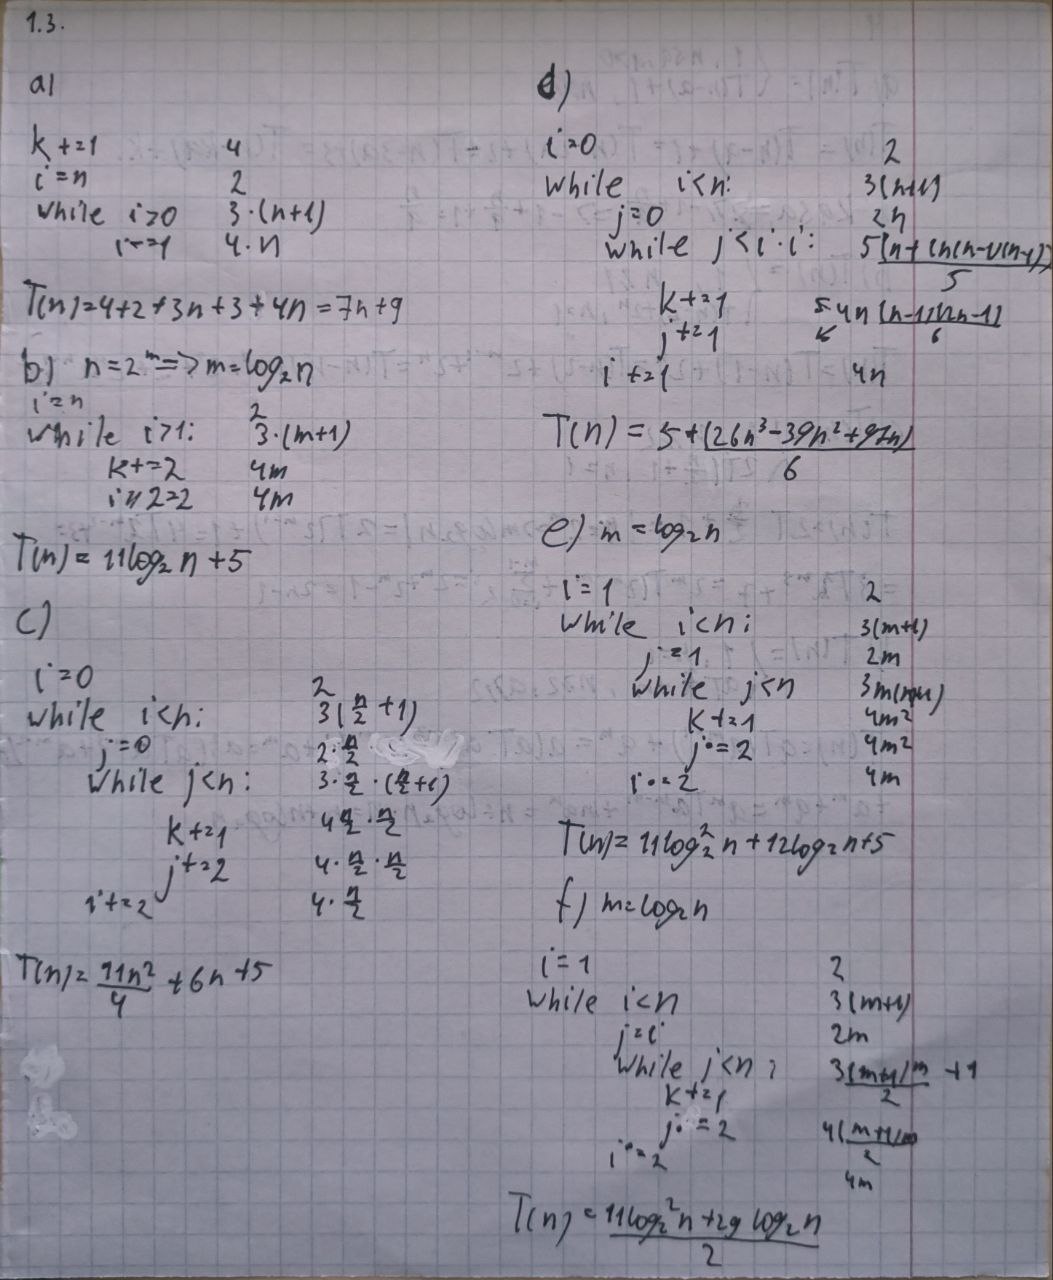 1.3.
a)
k+=1 4
i=n 2
while i>0 3·(n+1)
i-=1 4·n
T(n)=4+2+3n+3+4n=7n+9
b) n=2^m => m=log₂n
i=n 2
while i>1: 3·(m+1)
k+=2 4m
4m
T(n)=11log₂n+5
c)
i=0 2
while i<n: 3(n/2+1)
j=0 2·n/2
while j<n: 3·n/2·(n/2+1)
k+=1 4n/2·n/2
j+=2 4·n/2·n/2
i+=2 4·n/2
T(n)=11n²/4+6n+5
d)
i=0 2
while i<n: 3(n+1)
j=0 2n
while j<i·i:
k+=1
j+=1
i+=1 4n
T(n)=5+(26n³-39n²+97n)/6
e) m=log₂n
i=1 2
while i<n: 3(m+1)
j=1 2m
while j<n 3m(m+1)
k+=1 4m²
j·=2 4m²
i·=2 4m
T(n)=11log₂²n+12log₂n+5
f) m=log₂n
i=1 2
while i<n 3(m+1)
j=i 2m
while j<n: 3(m+1)m/2 +1
k+=1
j·=2
i·=2
4m
T(n)=(11log₂²n+29log₂n)/2